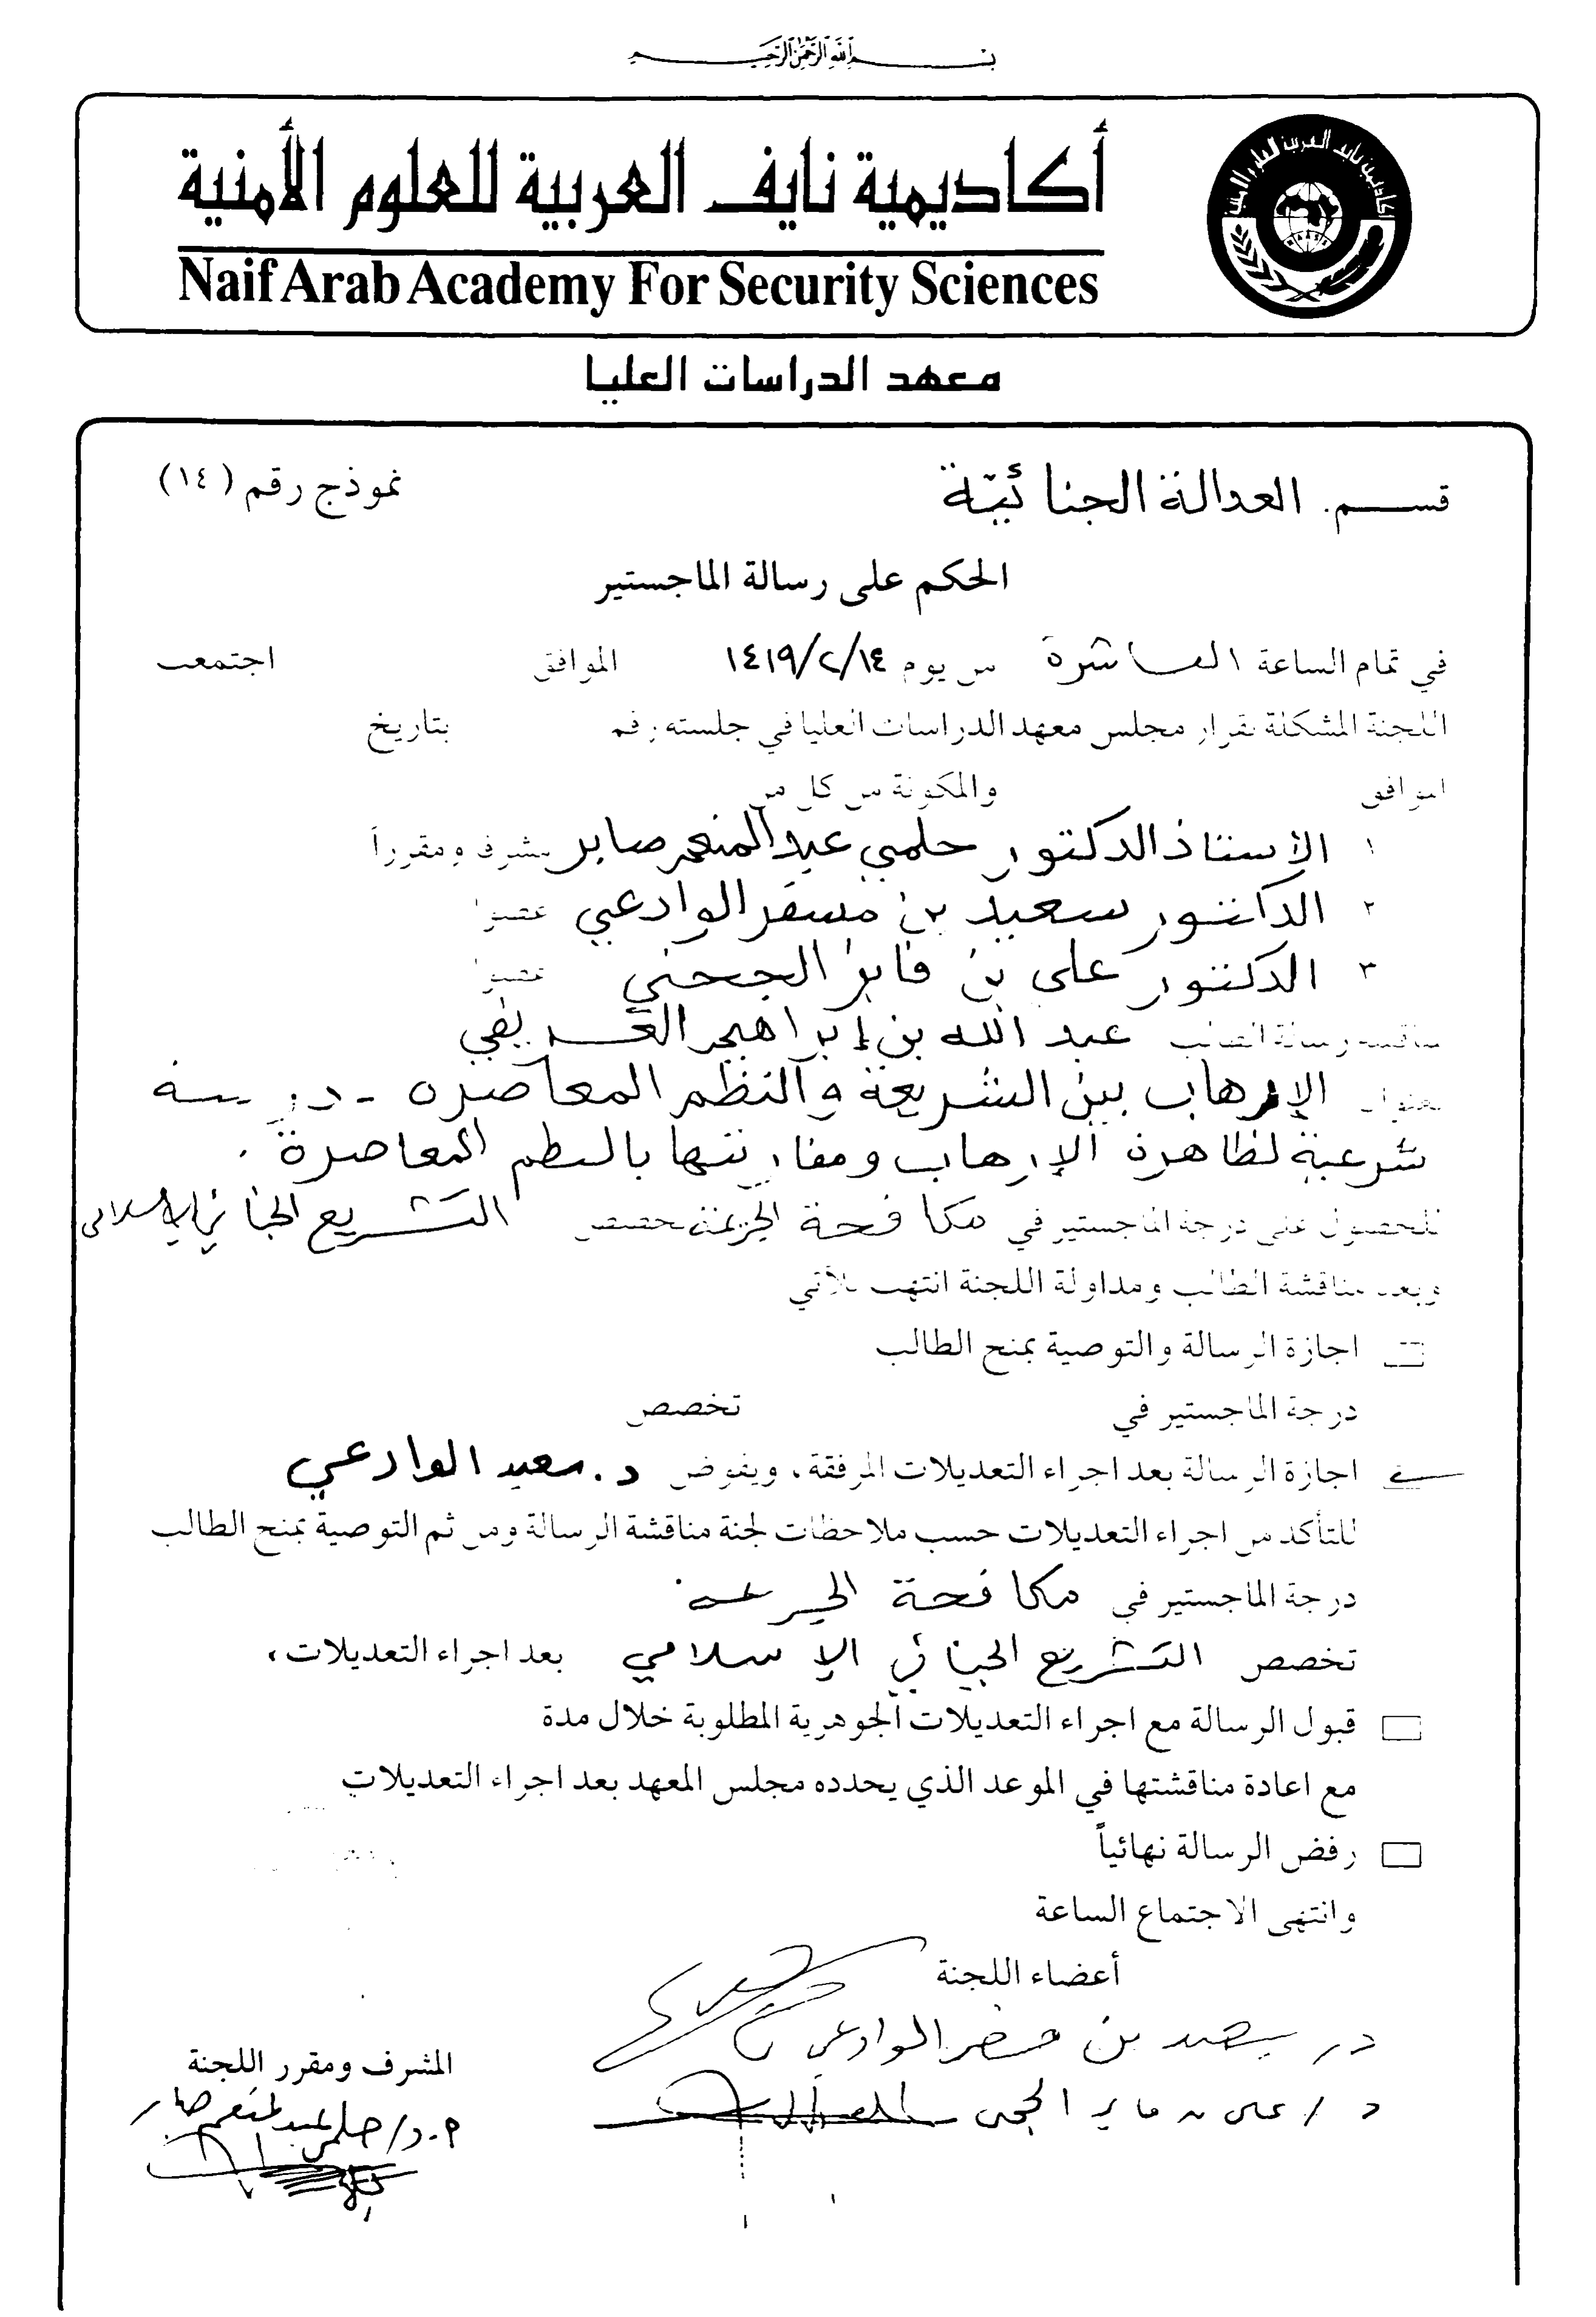 بسم الله الرحمن الرحيم
أكاديمية نايف العربية للعلوم الأمنية
Naif Arab Academy For Security Sciences
معهد الدراسات العليا
قسم العدالة الجنائية
نموذج رقم (١٤)
الحكم على رسالة الماجستير
في تمام الساعة العاشرة من يوم ١٤١٩/٢/١٤ الموافق اجتمعت
اللجنة المشكلة بقرار مجلس معهد الدراسات العليا في جلسته رقم بتاريخ
الموافق والمكونة من كل من
١ الأستاذ الدكتور حلمي عبد المنعم صابر مشرف ومقرراً
٢ الدكتور سعيد بن مسفر الوادعي عضوا
٣ الدكتور علي بن فايز الجحني عضوا
مناقشة رسالة الطالب عبد الله بن إبراهيم العريفي
بعنوان الإرهاب بين الشريعة والنظم المعاصرة - دراسة
شرعية لظاهرة الإرهاب ومقارنتها بالنظم المعاصرة .
للحصول على درجة الماجستير في مكافحة الجريمة تخصص التشريع الجنائي الإسلامي
وبعد مناقشة الطالب ومداولة اللجنة انتهت للآتي
اجازة الرسالة والتوصية بمنح الطالب
درجة الماجستير في تخصص
اجازة الرسالة بعد اجراء التعديلات المرفقة، ويفوض د. سعيد الوادعي
للتأكد من اجراء التعديلات حسب ملاحظات لجنة مناقشة الرسالة ومن ثم التوصية بمنح الطالب
درجة الماجستير في مكافحة الجريمة
تخصص التشريع الجنائي الإسلامي بعد اجراء التعديلات،
قبول الرسالة مع اجراء التعديلات الجوهرية المطلوبة خلال مدة
مع اعادة مناقشتها في الموعد الذي يحدده مجلس المعهد بعد اجراء التعديلات
رفض الرسالة نهائياً
وانتهى الاجتماع الساعة
أعضاء اللجنة
د/ سعيد بن مسفر الوادعي
د/ علي بن فايز الجحني
المشرف ومقرر اللجنة
أ.د/ حلمي عبد المنعم صابر